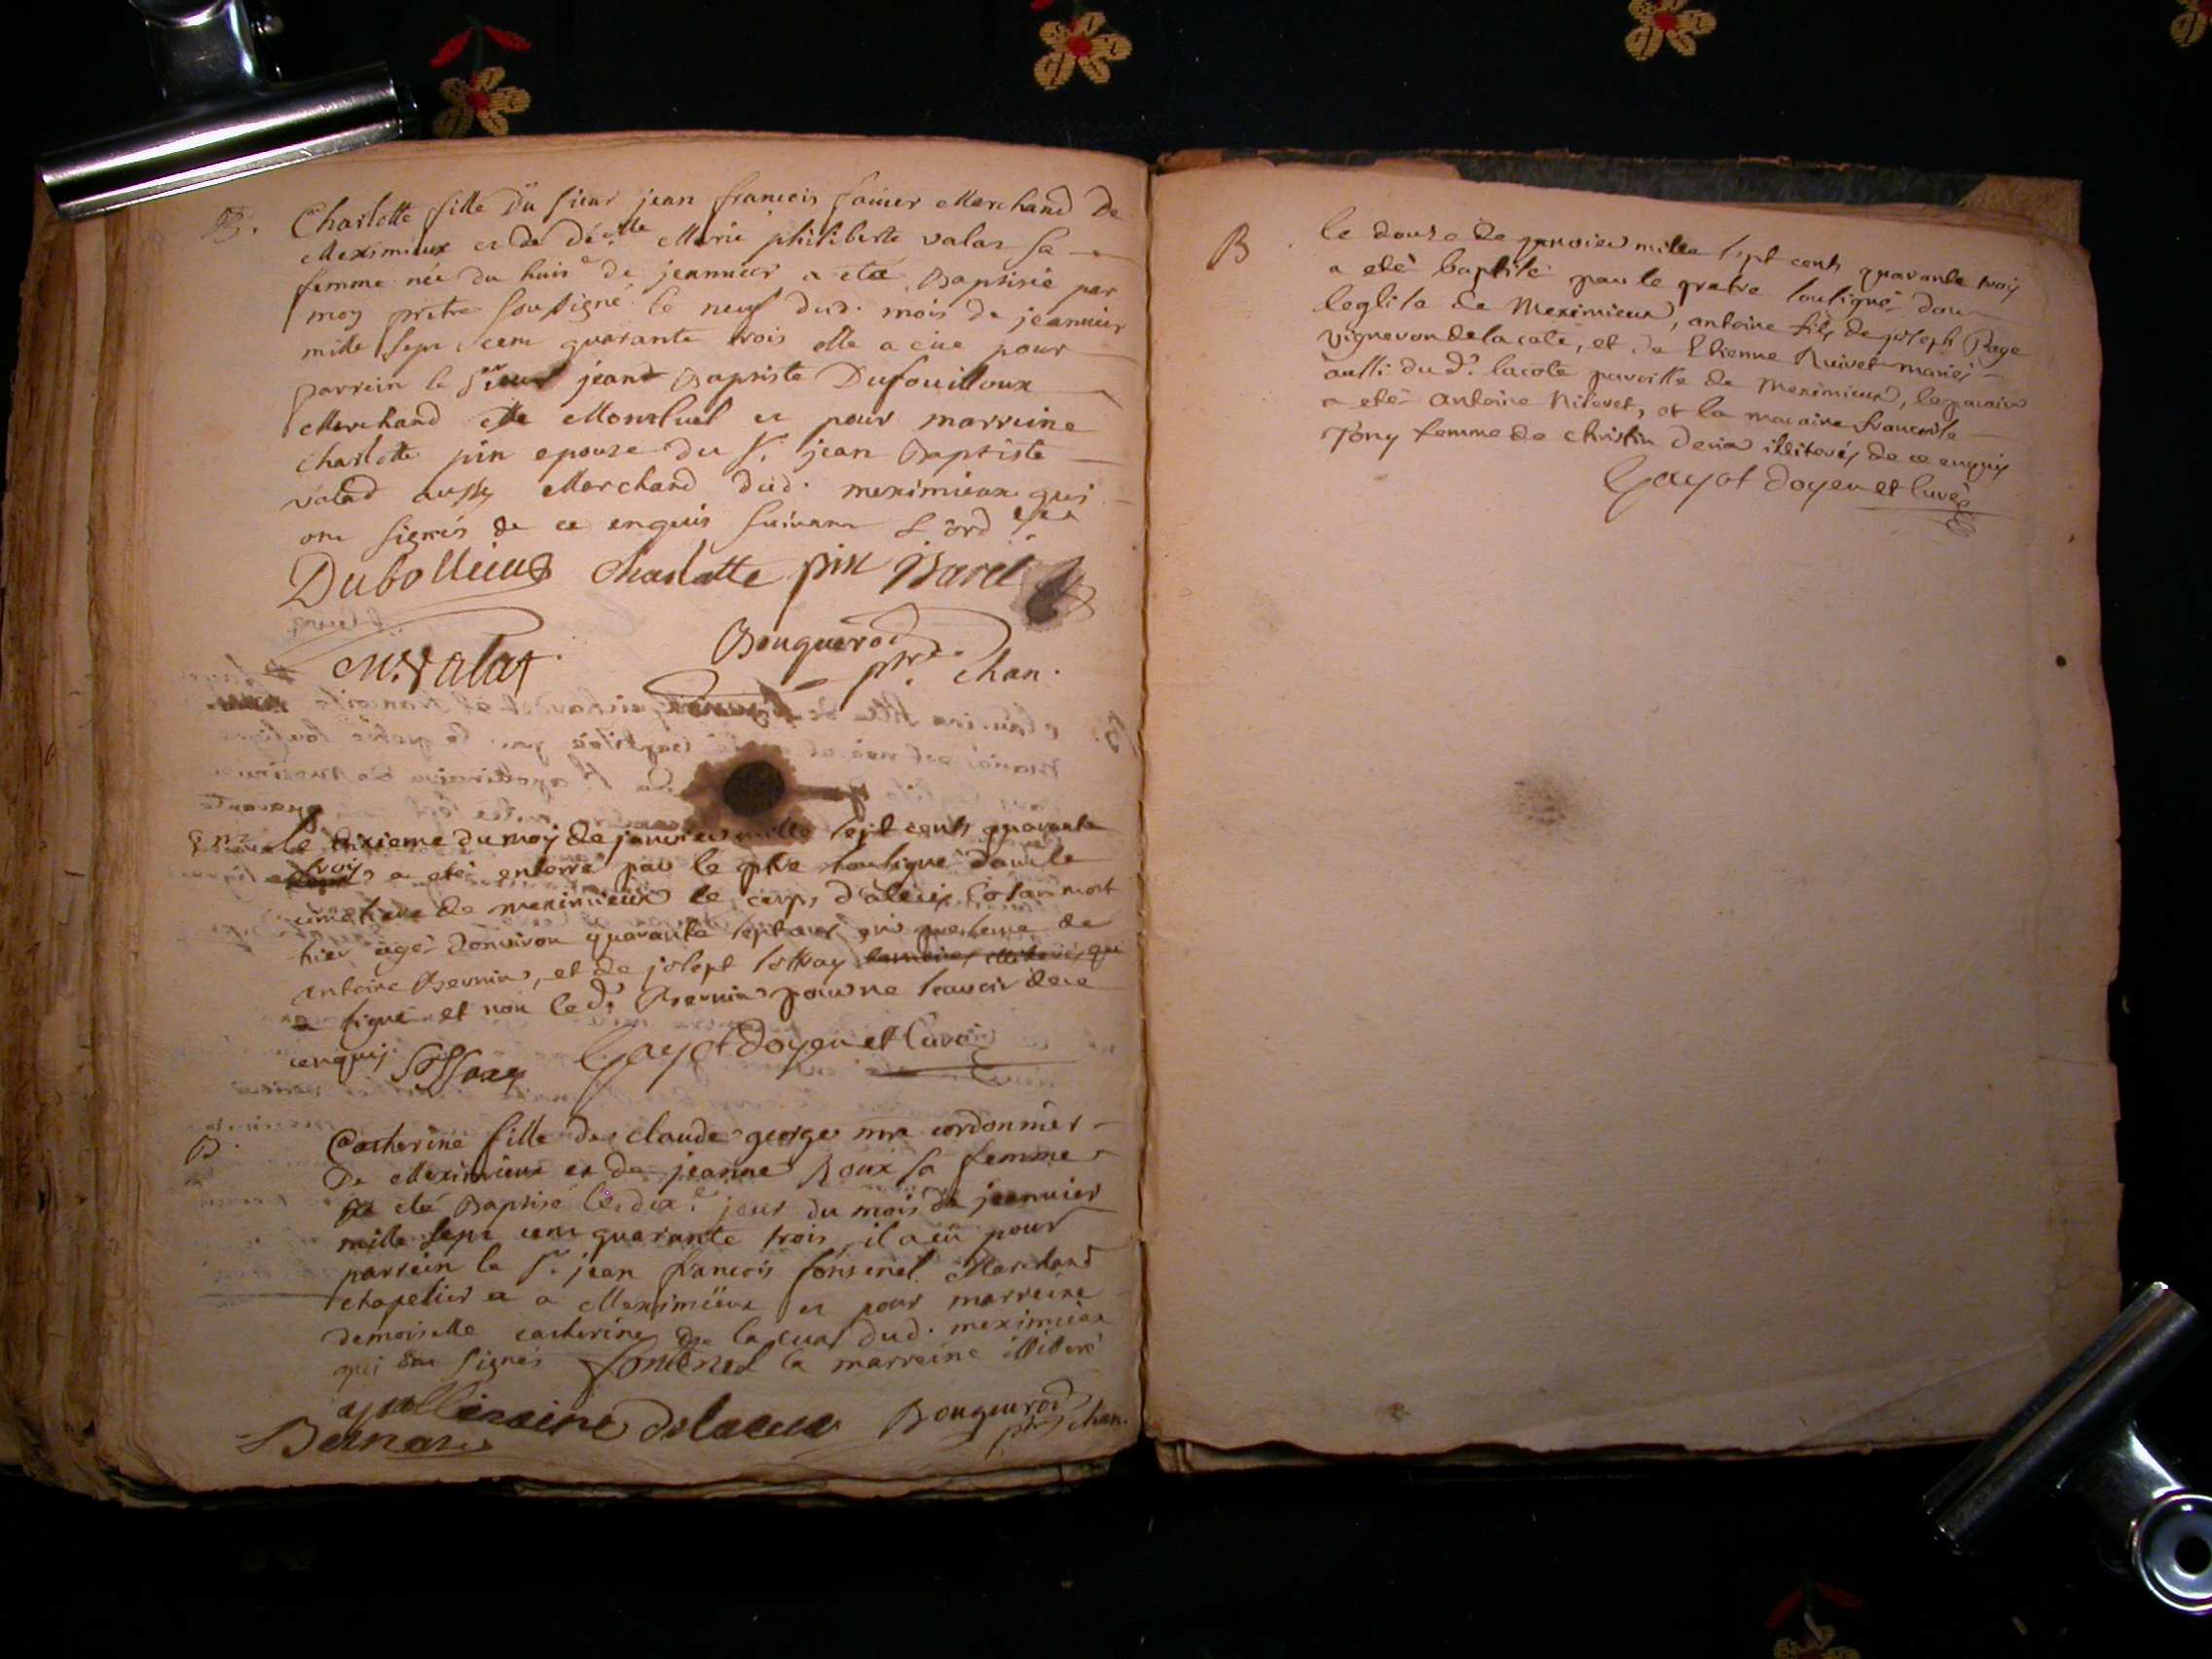 B. Charlotte fille Dü sieur jean francois Marchand De
Meximieux et de dé.elle Marie philiberte valar sa
femme née du huit.e de jeanvier a eté Baptisée par
moy pretre soussigné le neuf dud. mois de jeanvier
mille sept cent quarante trois elle a eüe pour
parrein le Sieur jean Baptiste Dufouilloux
Marchand de Montluel et pour marreine
charlotte pin epouze du Sr. jean Baptiste
valad aussy Marchand dud. meximieux qui
ont signés de ce enquis suivant L'ord.
charlotte pin
M. valat
Bouguerod
ptre. Chan.
le dixieme du moy de janvier mille sept cents quarante
trois a eté enterré par le ptre soussigné dans le
cimetiere de meximieux le corps d'alexis mort
hier agé d'environ quarante sept ans en presence de
antoine Bernin, et de josept
a signé et non le d. Bernin pour ne scavoir de ce
enquis. Gayot doyen et Curé
B. Catherine fille de claude george mre cordonnier
De Meximieux et de jeanne Roux sa femme
a eté Baptisé le dix.e jour du mois de jeanvier
mille sept cent quarante trois, il a eü pour
parrein le Sr. jean francois fontenel Marchand
chapelier a Meximieux et pour marreine
demoiselle catherine de lacua dud. meximieux
qui signés fontenel la marreine illiteré
apollinaire Delacua Bouguerod
Bernard ptre chan.
B le douze de janvier mille sept cents quarante trois
a eté baptisé par le pretre soussigné dans
l'eglise de Meximieux, antoine fils de joseph Page
vigneron de la cote, et de Etienne Ruivet mariés
aussi du d. lacote paroisse de meximieux, le parain
a eté antoine, et la maraine francoise
femme de christin illiterés de ce enquis
Gayot doyen et Curé